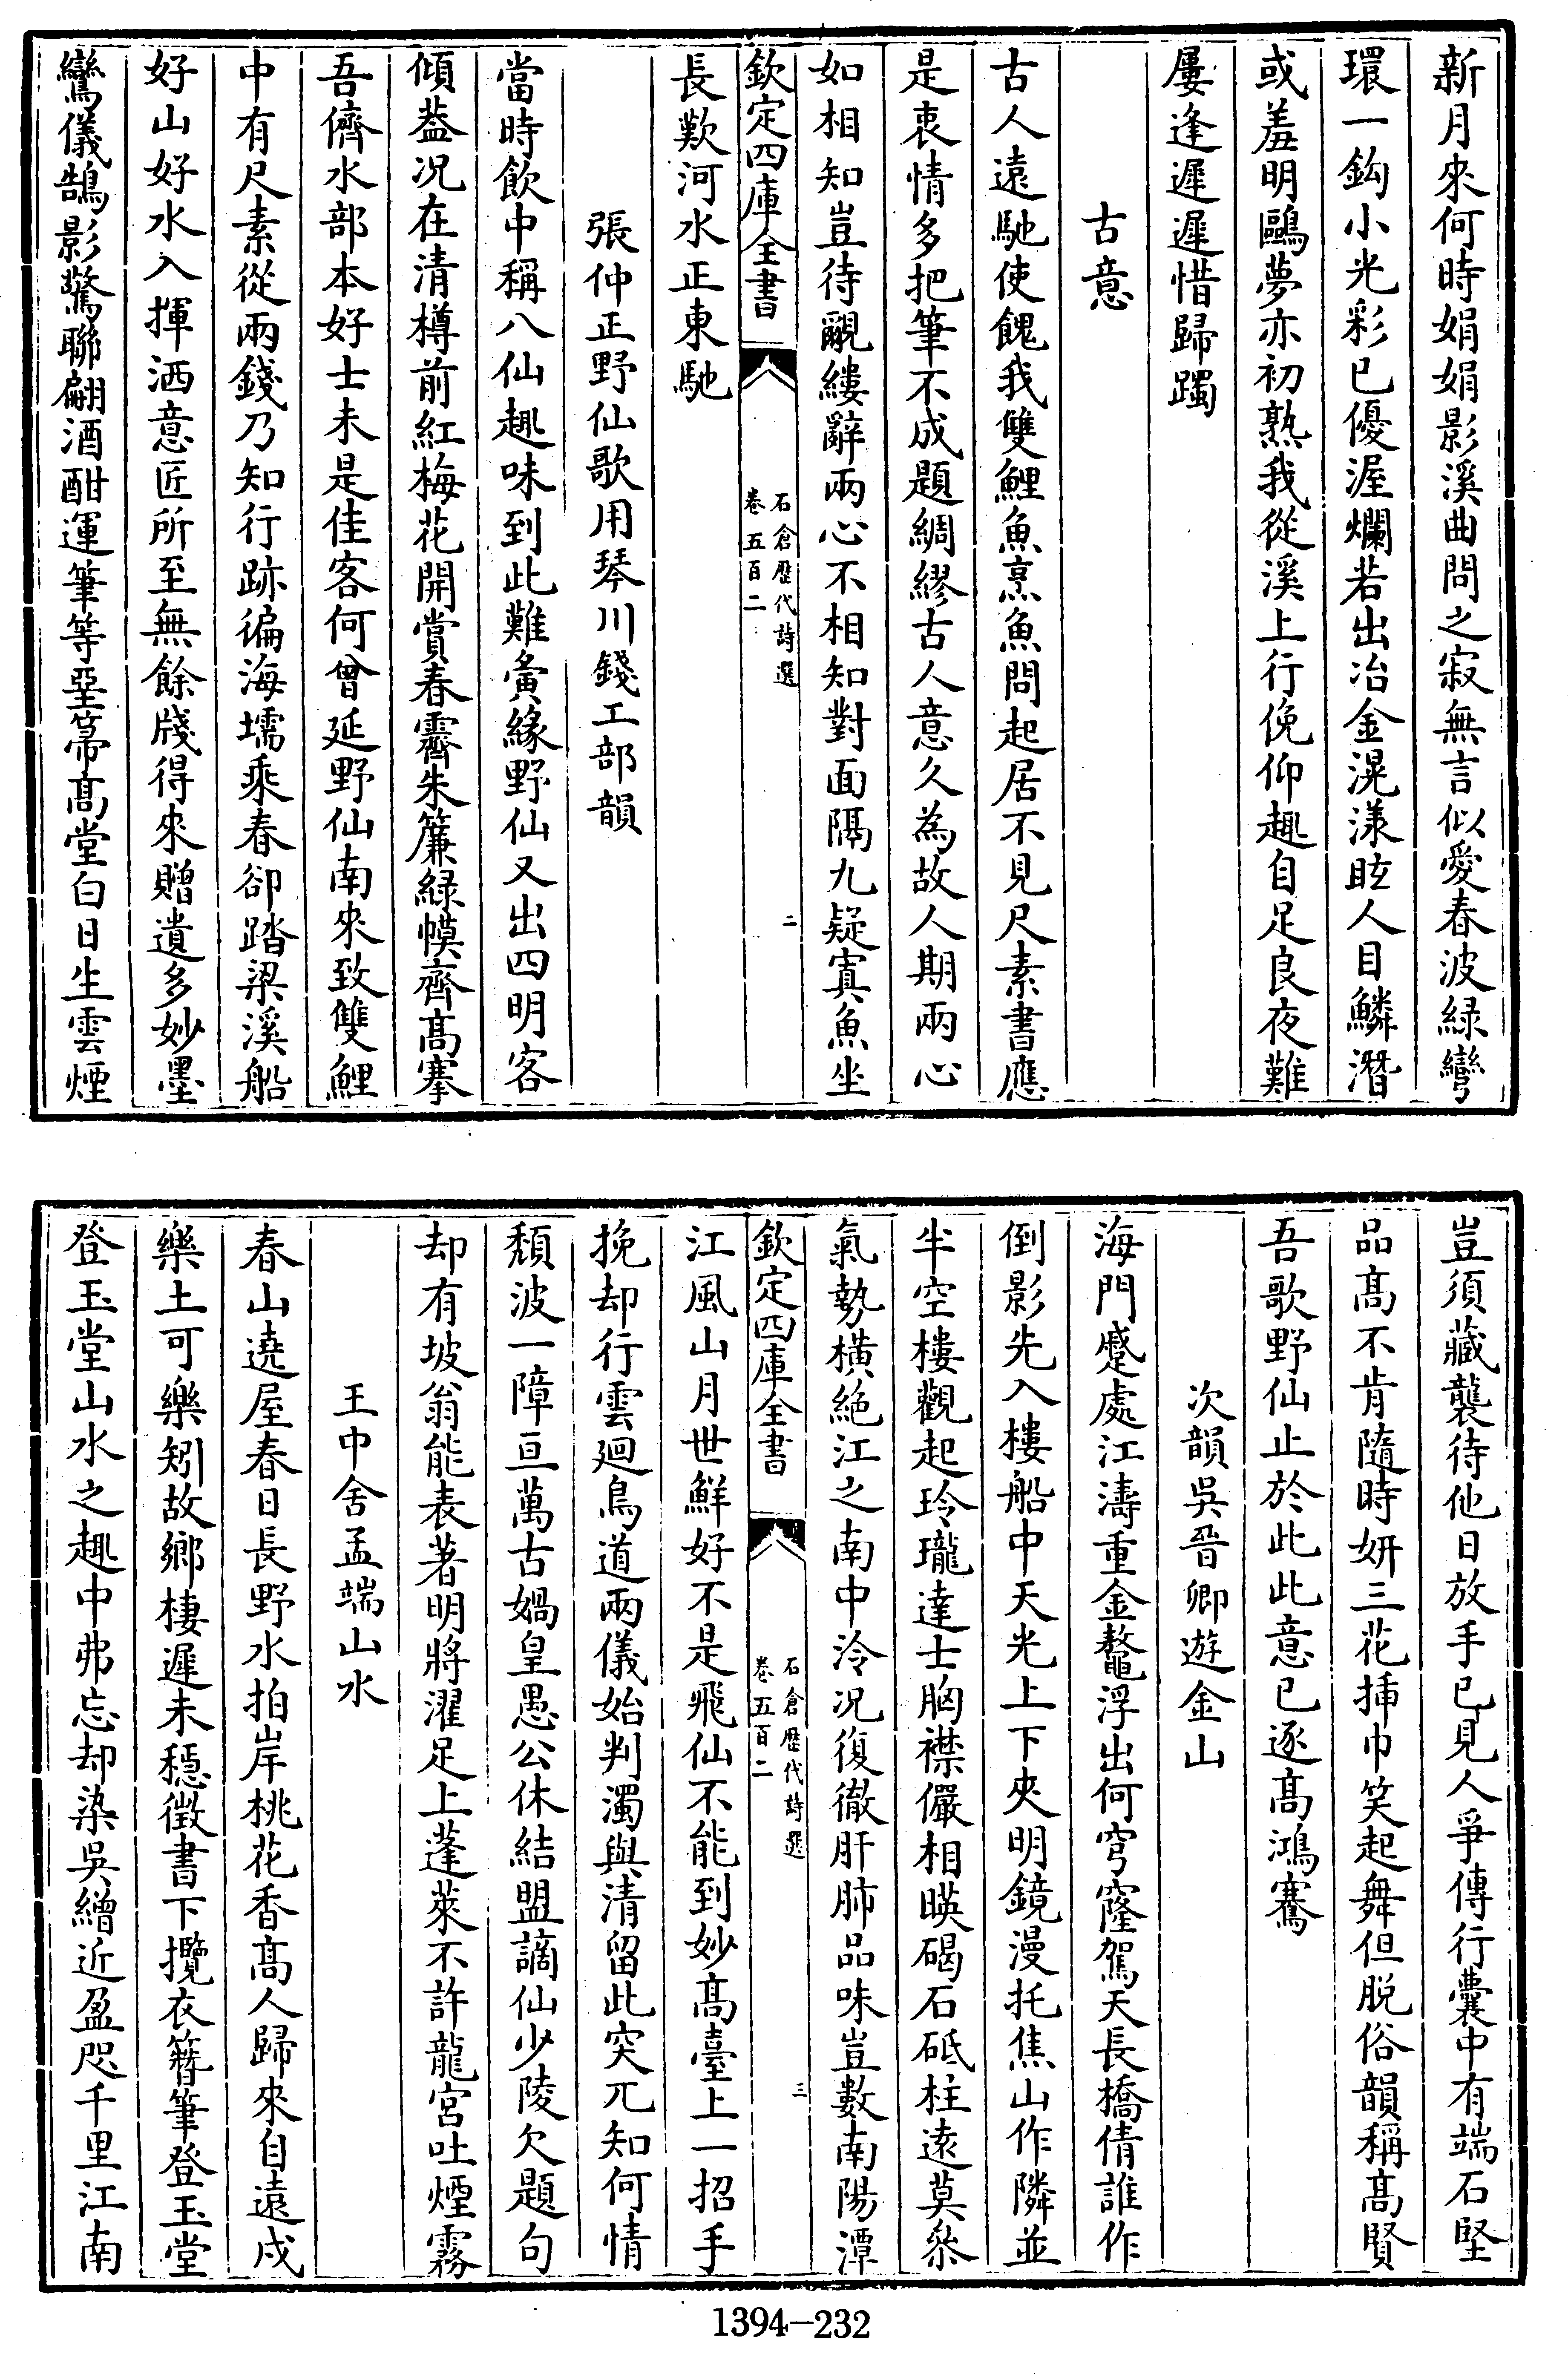 新月來何時娟娟影溪曲問之寂無言似愛春波緑彎
環一鈎小光彩已優渥爛若出冶金滉漾眩人目鱗潛
或羞明鷗夢亦初熟我從溪上行俛仰趣自足良夜難
屢逢遲遲惜歸躅
古意
古人遠馳使餽我雙鯉魚烹魚問起居不見尺素書應
是衷情多把筆不成題綢繆古人意久為故人期兩心
如相知豈待覼縷辭兩心不相知對面隔九疑寘魚坐
欽定四庫全書
石倉歷代詩選
卷五百二
二
長歎河水正東馳
張仲正野仙歌用琴川錢工部韻
當時飲中稱八仙趣味到此難夤緣野仙又出四明客
傾葢况在清樽前紅梅花開賞春霽朱簾緑幙齊髙搴
吾儕水部本好士未是佳客何曾延野仙南來致雙鯉
中有尺素從兩錢乃知行跡徧海壖乘春卻踏梁溪船
好山好水入揮洒意匠所至無餘牋得來贈遺多妙墨
鸞儀鵠影驚聯翩酒酣運筆等堊帚髙堂白日生雲煙
豈須藏襲待他日放手已見人爭傳行囊中有端石堅
品髙不肯隨時妍三花揷巾笑起舞但脱俗韻稱髙賢
吾歌野仙止於此此意已逐髙鴻騫
次韻吳晉卿遊金山
海門蹙處江濤重金鼇浮出何穹窿駕天長橋倩誰作
倒影先入樓船中天光上下夾明鏡漫托焦山作隣並
半空樓觀起玲瓏達士胸襟儼相暎碣石砥柱遠莫叅
氣勢橫絶江之南中泠况復徹肝肺品味豈數南陽潭
欽定四庫全書
石倉歷代詩選
卷五百二
三
江風山月世鮮好不是飛仙不能到妙髙臺上一招手
挽却行雲廻鳥道兩儀始判濁與清留此突兀知何情
頽波一障亘萬古媧皇愚公休結盟謫仙少陵欠題句
却有坡翁能表著明將濯足上蓬萊不許龍宮吐煙霧
王中舍孟端山水
春山遶屋春日長野水拍岸桃花香髙人歸來自遠戍
樂土可樂矧故鄉棲遲未穩徵書下攬衣簪筆登玉堂
登玉堂山水之趣中弗忘却染吳繒近盈咫千里江南
1394-232